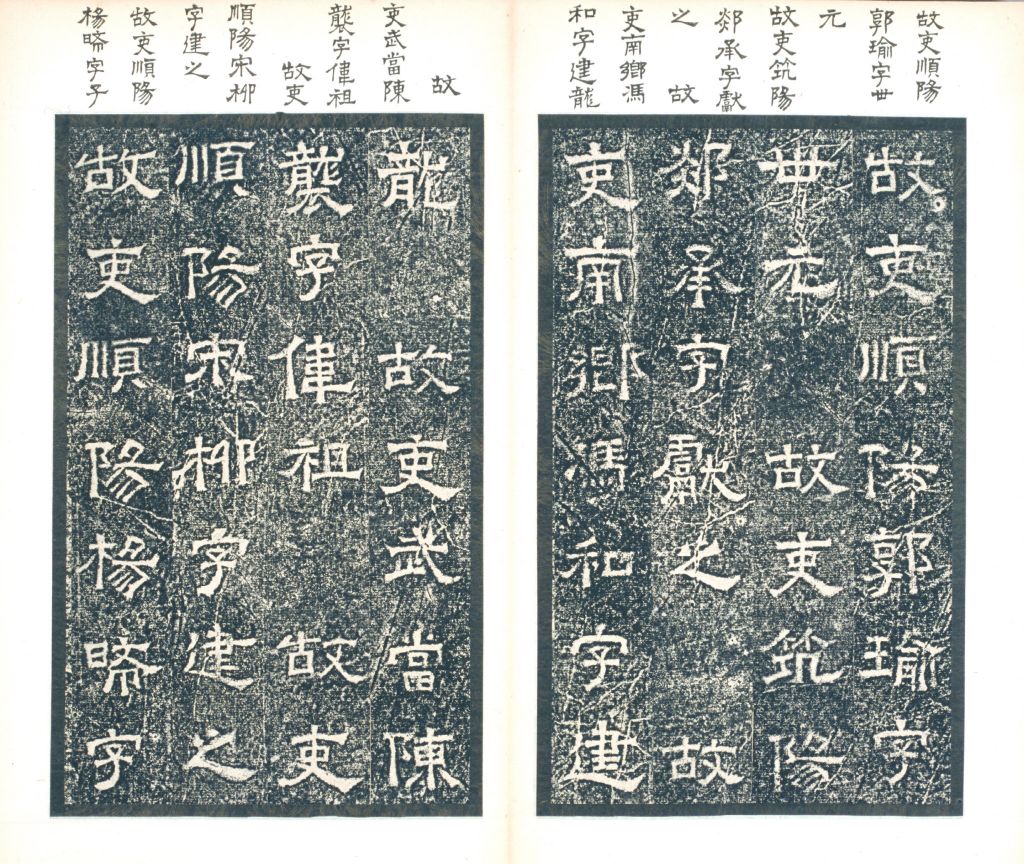 故吏順陽
郭瑜字世
元
故吏筑陽
郯承字獻
之 故
吏南鄉馮
和字建龍
故吏順陽郭瑜字
世元 故吏筑陽
郯承字獻之 故
吏南鄉馮和字建
故
吏武當陳
襲字偉祖
故吏
順陽宋栁
字建之
故吏順陽
楊晞字子
龍 故吏武當陳
襲字偉祖 故吏
順陽宋栁字建之
故吏順陽楊晞字